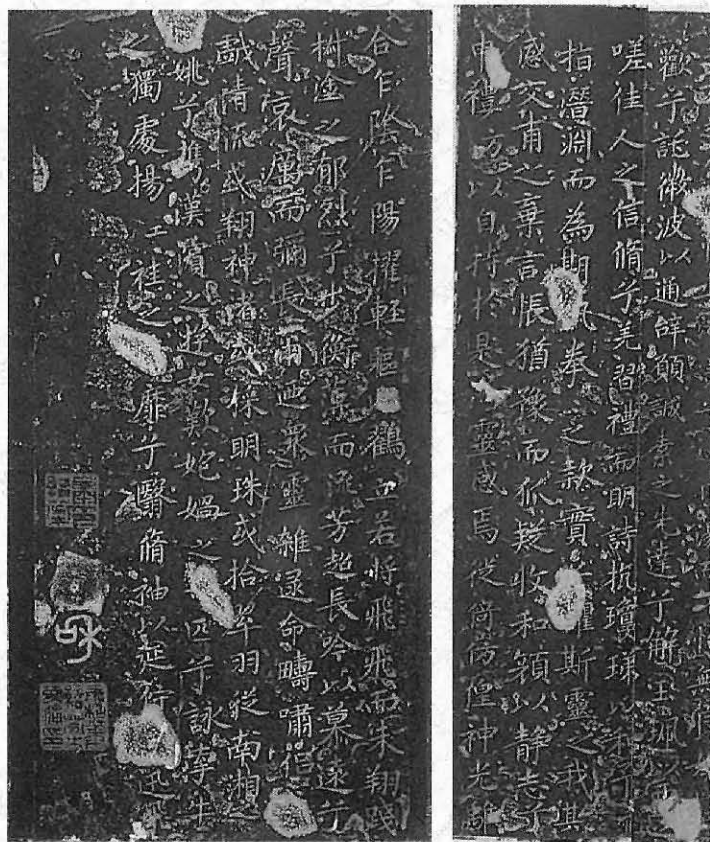 無
歡兮託微波以通辭願誠素之先達兮解玉珮以
嗟佳人之信脩兮羌習禮而明詩抗瓊珶以和予
指潛淵而為期執拳之款實懼斯靈之我其
感交甫之棄言悵猶豫而狐疑收和顏以靜志兮
申禮方以自持於是靈感焉徙倚傍徨神光離
合乍陰乍陽擢輕軀鶴立若將飛飛而未翔踐
椒塗之郁烈兮步衡薄而流芳超長吟以慕遠兮
聲哀厲而彌長爾迺衆靈雜遝命疇嘯侶
戲清流或翔神渚或採明珠或拾翠羽從南湘二
姚兮攜漢濱之遊女歎媧之匹兮詠牽牛
之獨處揚袿之靡兮翳脩袖以延佇迅飛